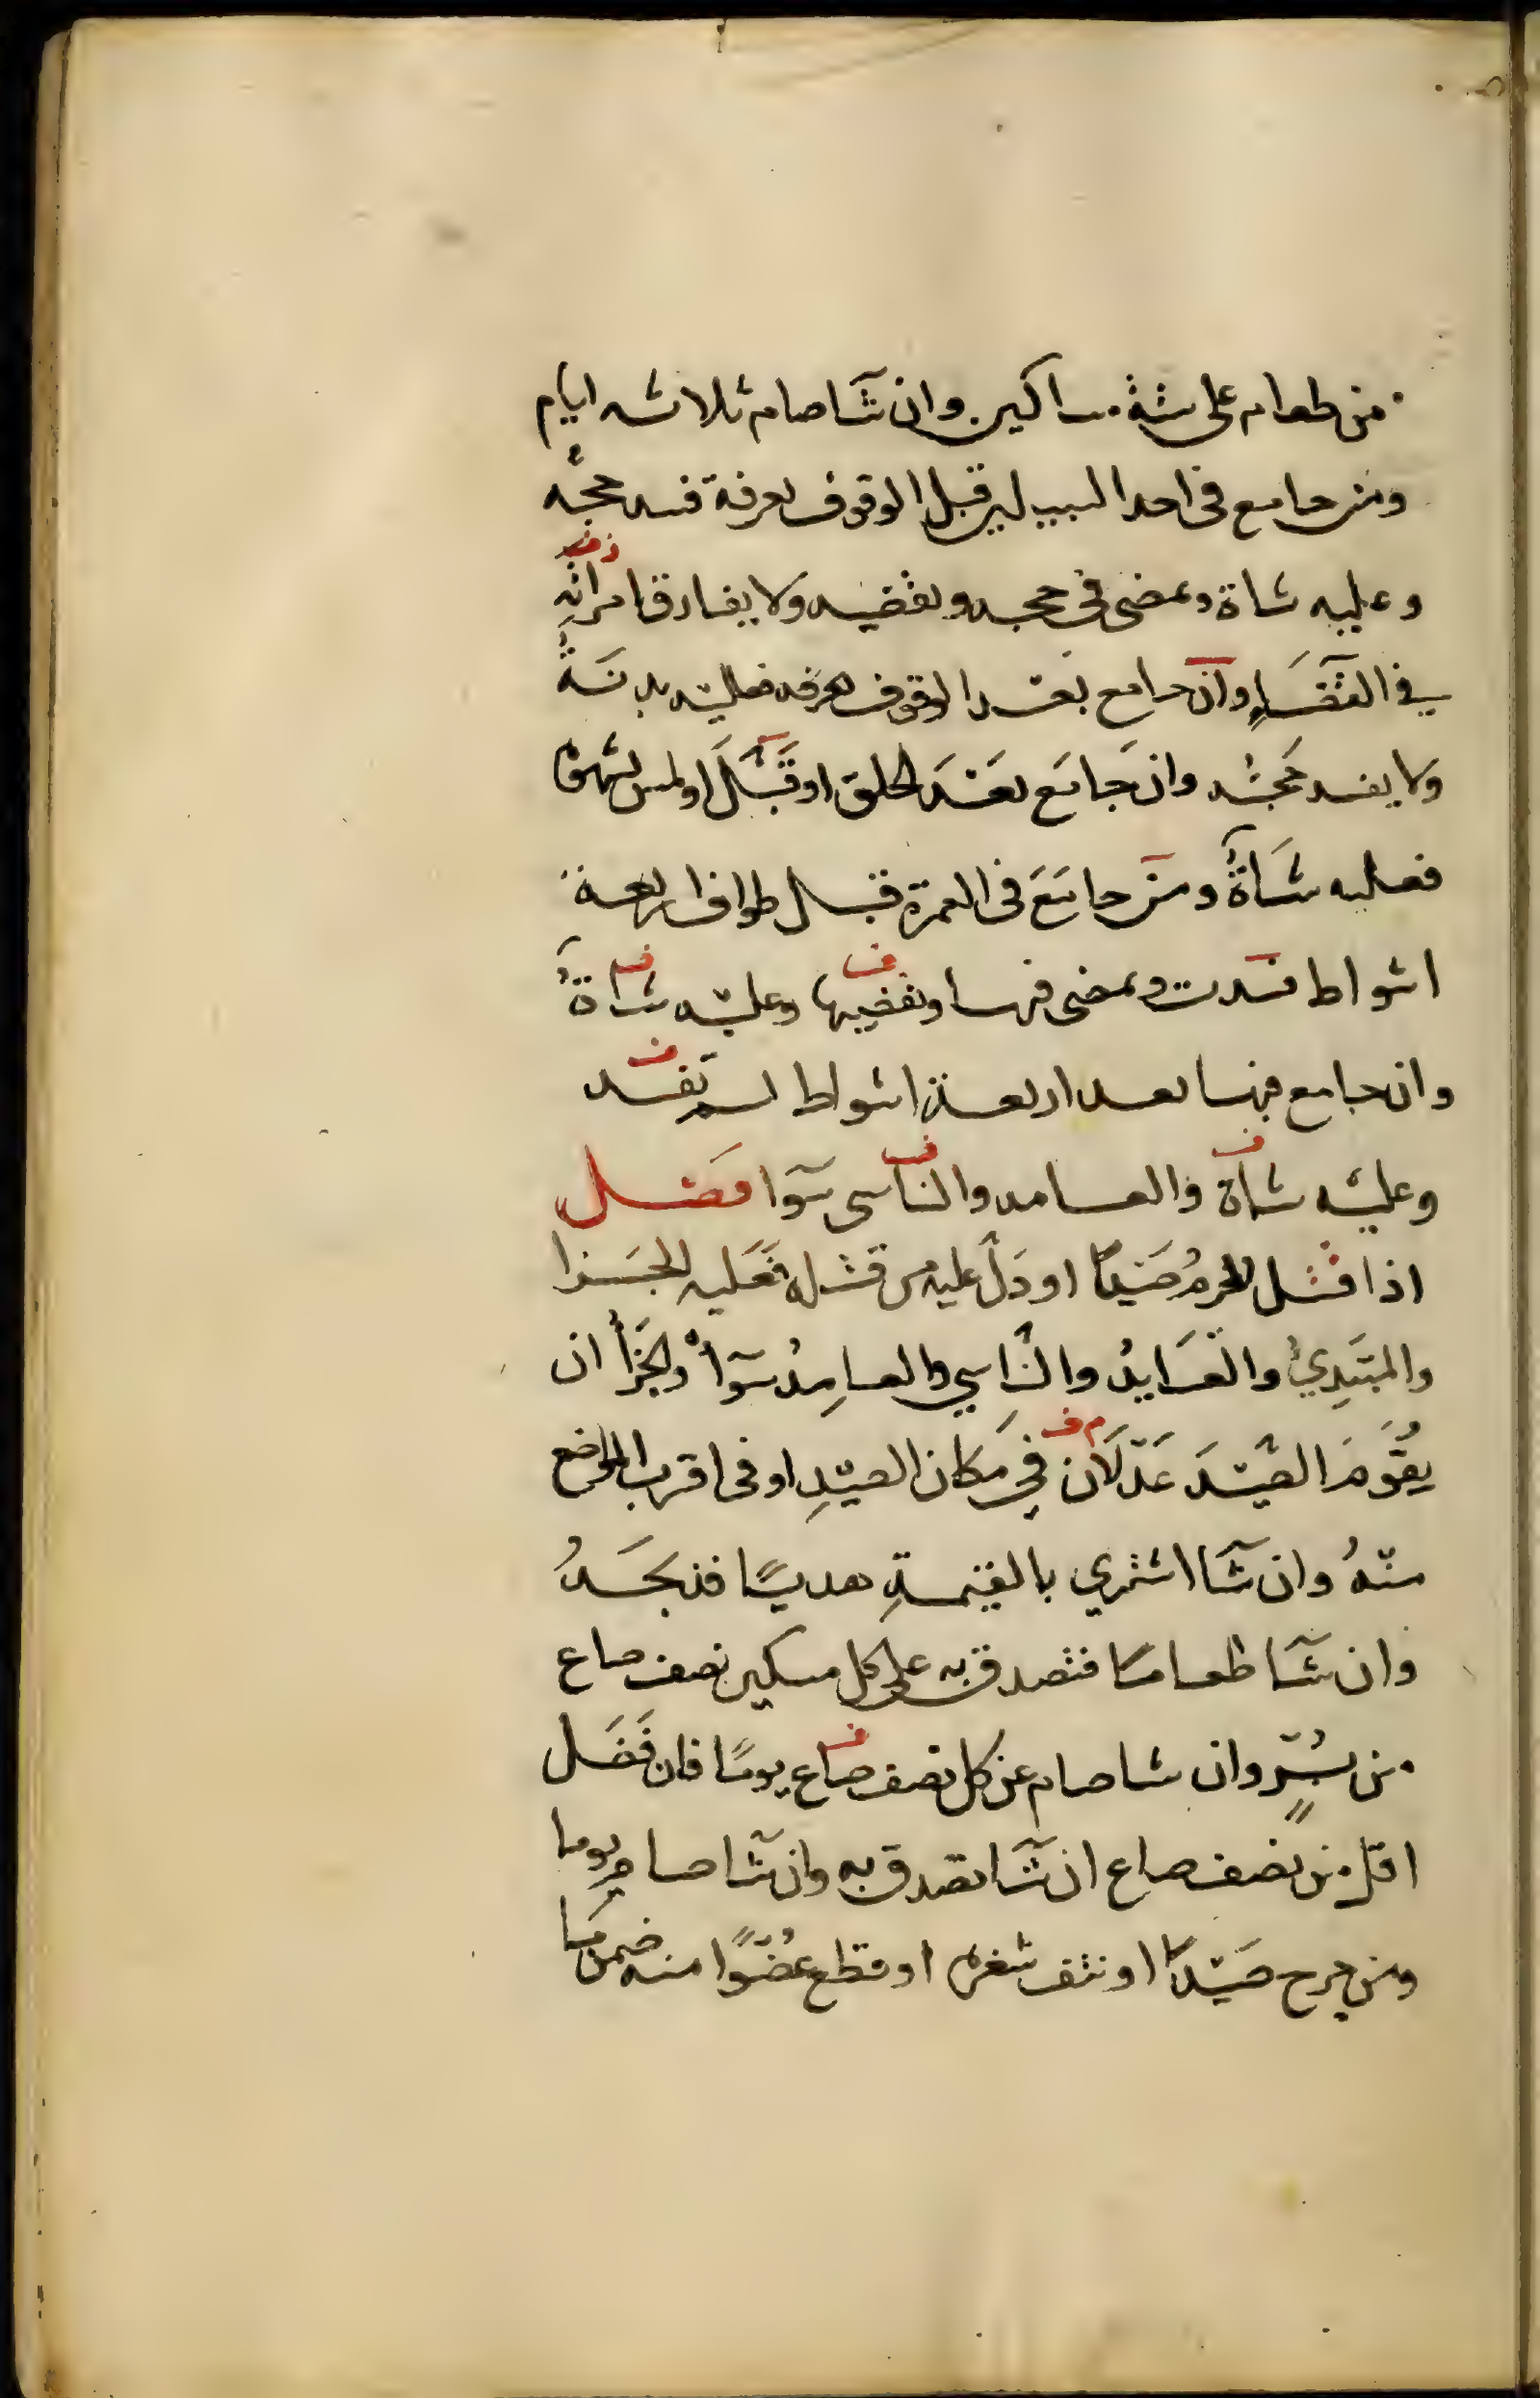 من طعام على ستة مساكين وان شآ صام ثلاثه ايام
ومن جامع في احد السبيلين قبل الوقوف بعرفة فسد حجه
وعليه شاة ويمضي في حجه ويقضيه ولا يفارق امراته
في القضاء وان جامع بعد الوقوف بعرفه فعليه بدنة
ولا يفسد حجه وان جامع بعد الحلق او قبل او لمس بشهوة
فعليه شاة ومن جامع في العمرة قبل طواف اربعة
اشواط فسدت ويمضي فيها ويقضيها وعليه شاة
وان جامع فيها بعد اربعة اشواط لم تفسد
وعليه شاة والعامد والناسي سوا فصل
اذا قتل المحرم صيدًا او دل عليه من قتله فعليه الجزا
والمبتدي والعايد والناسي والعامد سوآ والجزأ ان
يقوم الصيد عدلان في مكان الصيد او في اقرب المواضع
منه وان شآ اشتري بالقيمة هديًا فذبحه
وان شآ طعامًا فتصدق به على كل مسكين نصف صاع
من بر وان شا صام عن كل نصف صاع يومًا فان فضل
اقل من نصف صاع ان شآ تصدق به وان شآ صام يوما
ومن جرح صيدًا او نتف شعره او قطع عضوًا منه ضمن ما